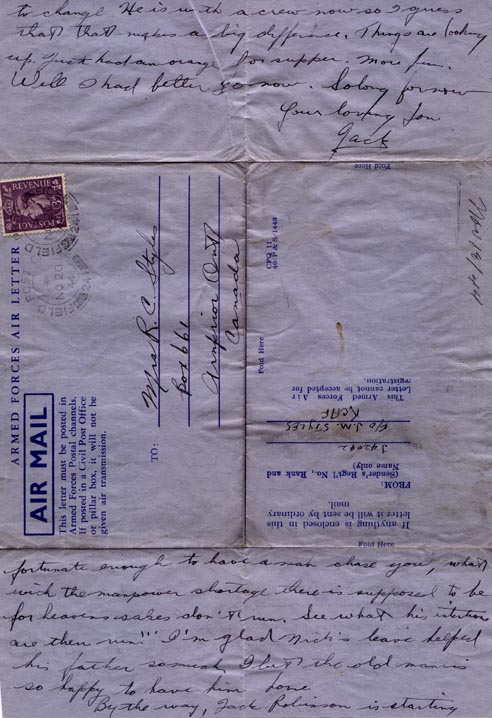 to change. He is with a crew now so I guess
that that makes a big difference. Things are looking
up. Just had an orange for supper. More fun.
Well I had better go now. So long for now
Your loving Son
Jack
Fold Here
REVENUE
POSTAGE
FIELD
NO 20
44
ARMED FORCES AIR LETTER
AIR MAIL
This letter must be posted in
Armed Forces Postal channels.
If posted in a Civil Post Office
or pillar box, it will not be
given air transmission.
TO:
Mrs R. C. Styles
Box 661
Arnprior Ont
Canada
Fold Here
This Armed Forces Air
Letter cannot be accepted for
registration.
RCAF
F/O J.M. STYLES
J42092
(Sender's Regt'l No., Rank and
Name only)
FROM:
If anything is enclosed in this
letter it will be sent by ordinary
mail.
Fold Here
fortunate enough to have a man chase you, what
with the manpower shortage there is supposed to be
for heavens sakes don't run. See what his intentions
are then run!!! I'm glad Nick's leave helped
his father so much. I bet the old man is
so happy to have him home.
By the way, Jack Robinson is starting